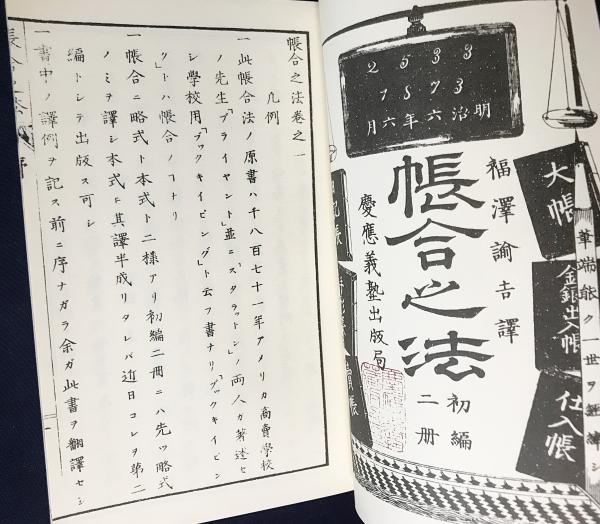 2533
1873
明治六年六月
福澤諭吉譯
帳合之法
初編
二册
慶應義塾出版局
大帳
金銀出入帳
仕入帳
帳合之法卷之一
凡例
一此帳合法ノ原書ハ千八百七十一年アメリカ商賣學校
ノ先生「ブライヤント」並ニ「スタラットン」ノ兩人ガ著述セ
シ學校用「ブックキイピング」ト云フ書ナリ「ブックキイピン
グ」トハ帳合ノヿナリ
一帳合ニ略式ト本式ト二樣アリ初編二册ニハ先ツ略式
ノミヲ譯シ本式ハ其譯半成リタレバ近日コレヲ第二
編トシテ出版ス可シ
一書中ノ譯例ヲ記ス前ニ序ナガラ余ガ此書ヲ翻譯セシ